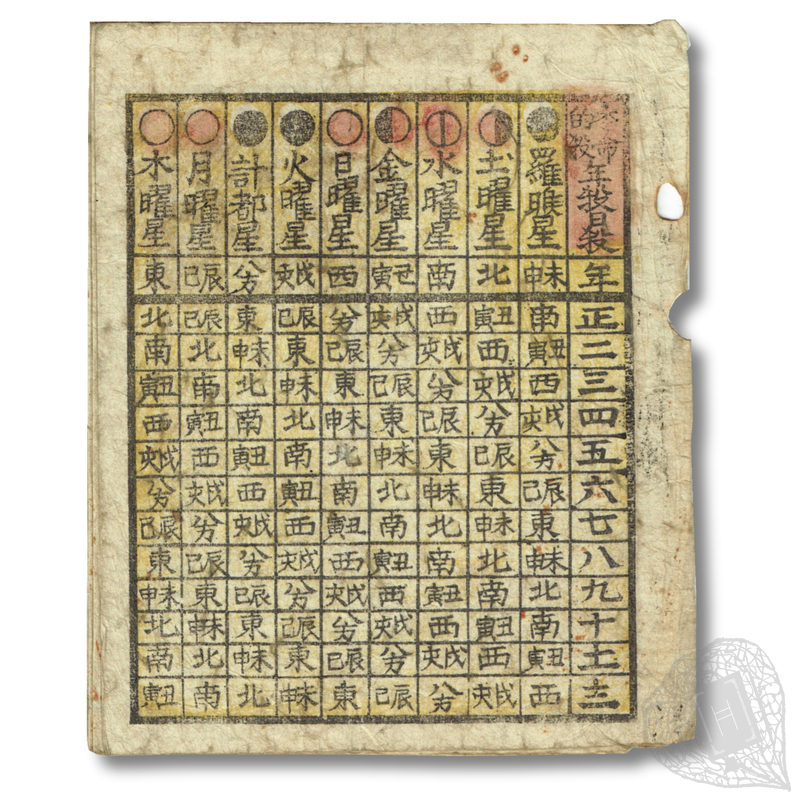 本命的殺
年殺日殺 年 正 二 三 四 五 六 七 八 九 十 十一 十二
羅睺星 未申 南 丑寅 西 戌亥 八方 辰巳 東 未申 北 南 丑寅 西
土曜星 北 丑寅 西 戌亥 八方 辰巳 東 未申 北 南 丑寅 西 戌亥
水曜星 南 西 戌亥 八方 辰巳 東 未申 北 南 丑寅 西 戌亥 八方
金曜星 丑寅 戌亥 八方 辰巳 東 未申 北 南 丑寅 西 戌亥 八方 辰巳
日曜星 西 八方 辰巳 東 未申 北 南 丑寅 西 戌亥 八方 辰巳 東
火曜星 戌亥 辰巳 東 未申 北 南 丑寅 西 戌亥 八方 辰巳 東 未申
計都星 八方 東 未申 北 南 丑寅 西 戌亥 八方 辰巳 東 未申 北
月曜星 辰巳 辰巳 北 南 丑寅 西 戌亥 八方 辰巳 東 未申 北 南
木曜星 東 北 南 丑寅 西 戌亥 八方 辰巳 東 未申 北 南 丑寅